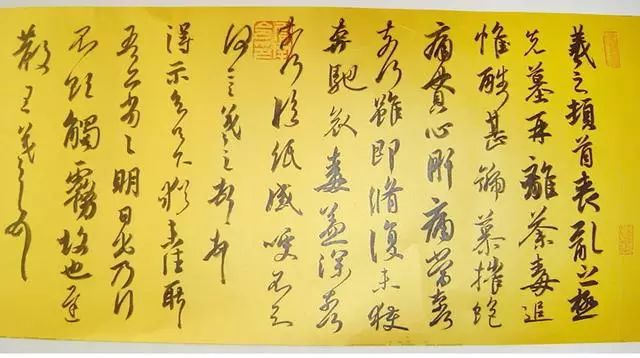 羲之頓首喪亂之極
先墓再離荼毒追
惟酷甚號慕摧絕
痛貫心肝痛當奈
奈何雖即脩復未獲
奔馳哀毒益深奈
奈何臨紙感哽不知
何言羲之頓首頓首
得示知足下猶未佳耿
吾亦劣劣明日出乃行
不欲觸霧故也遲
散王羲之頓首